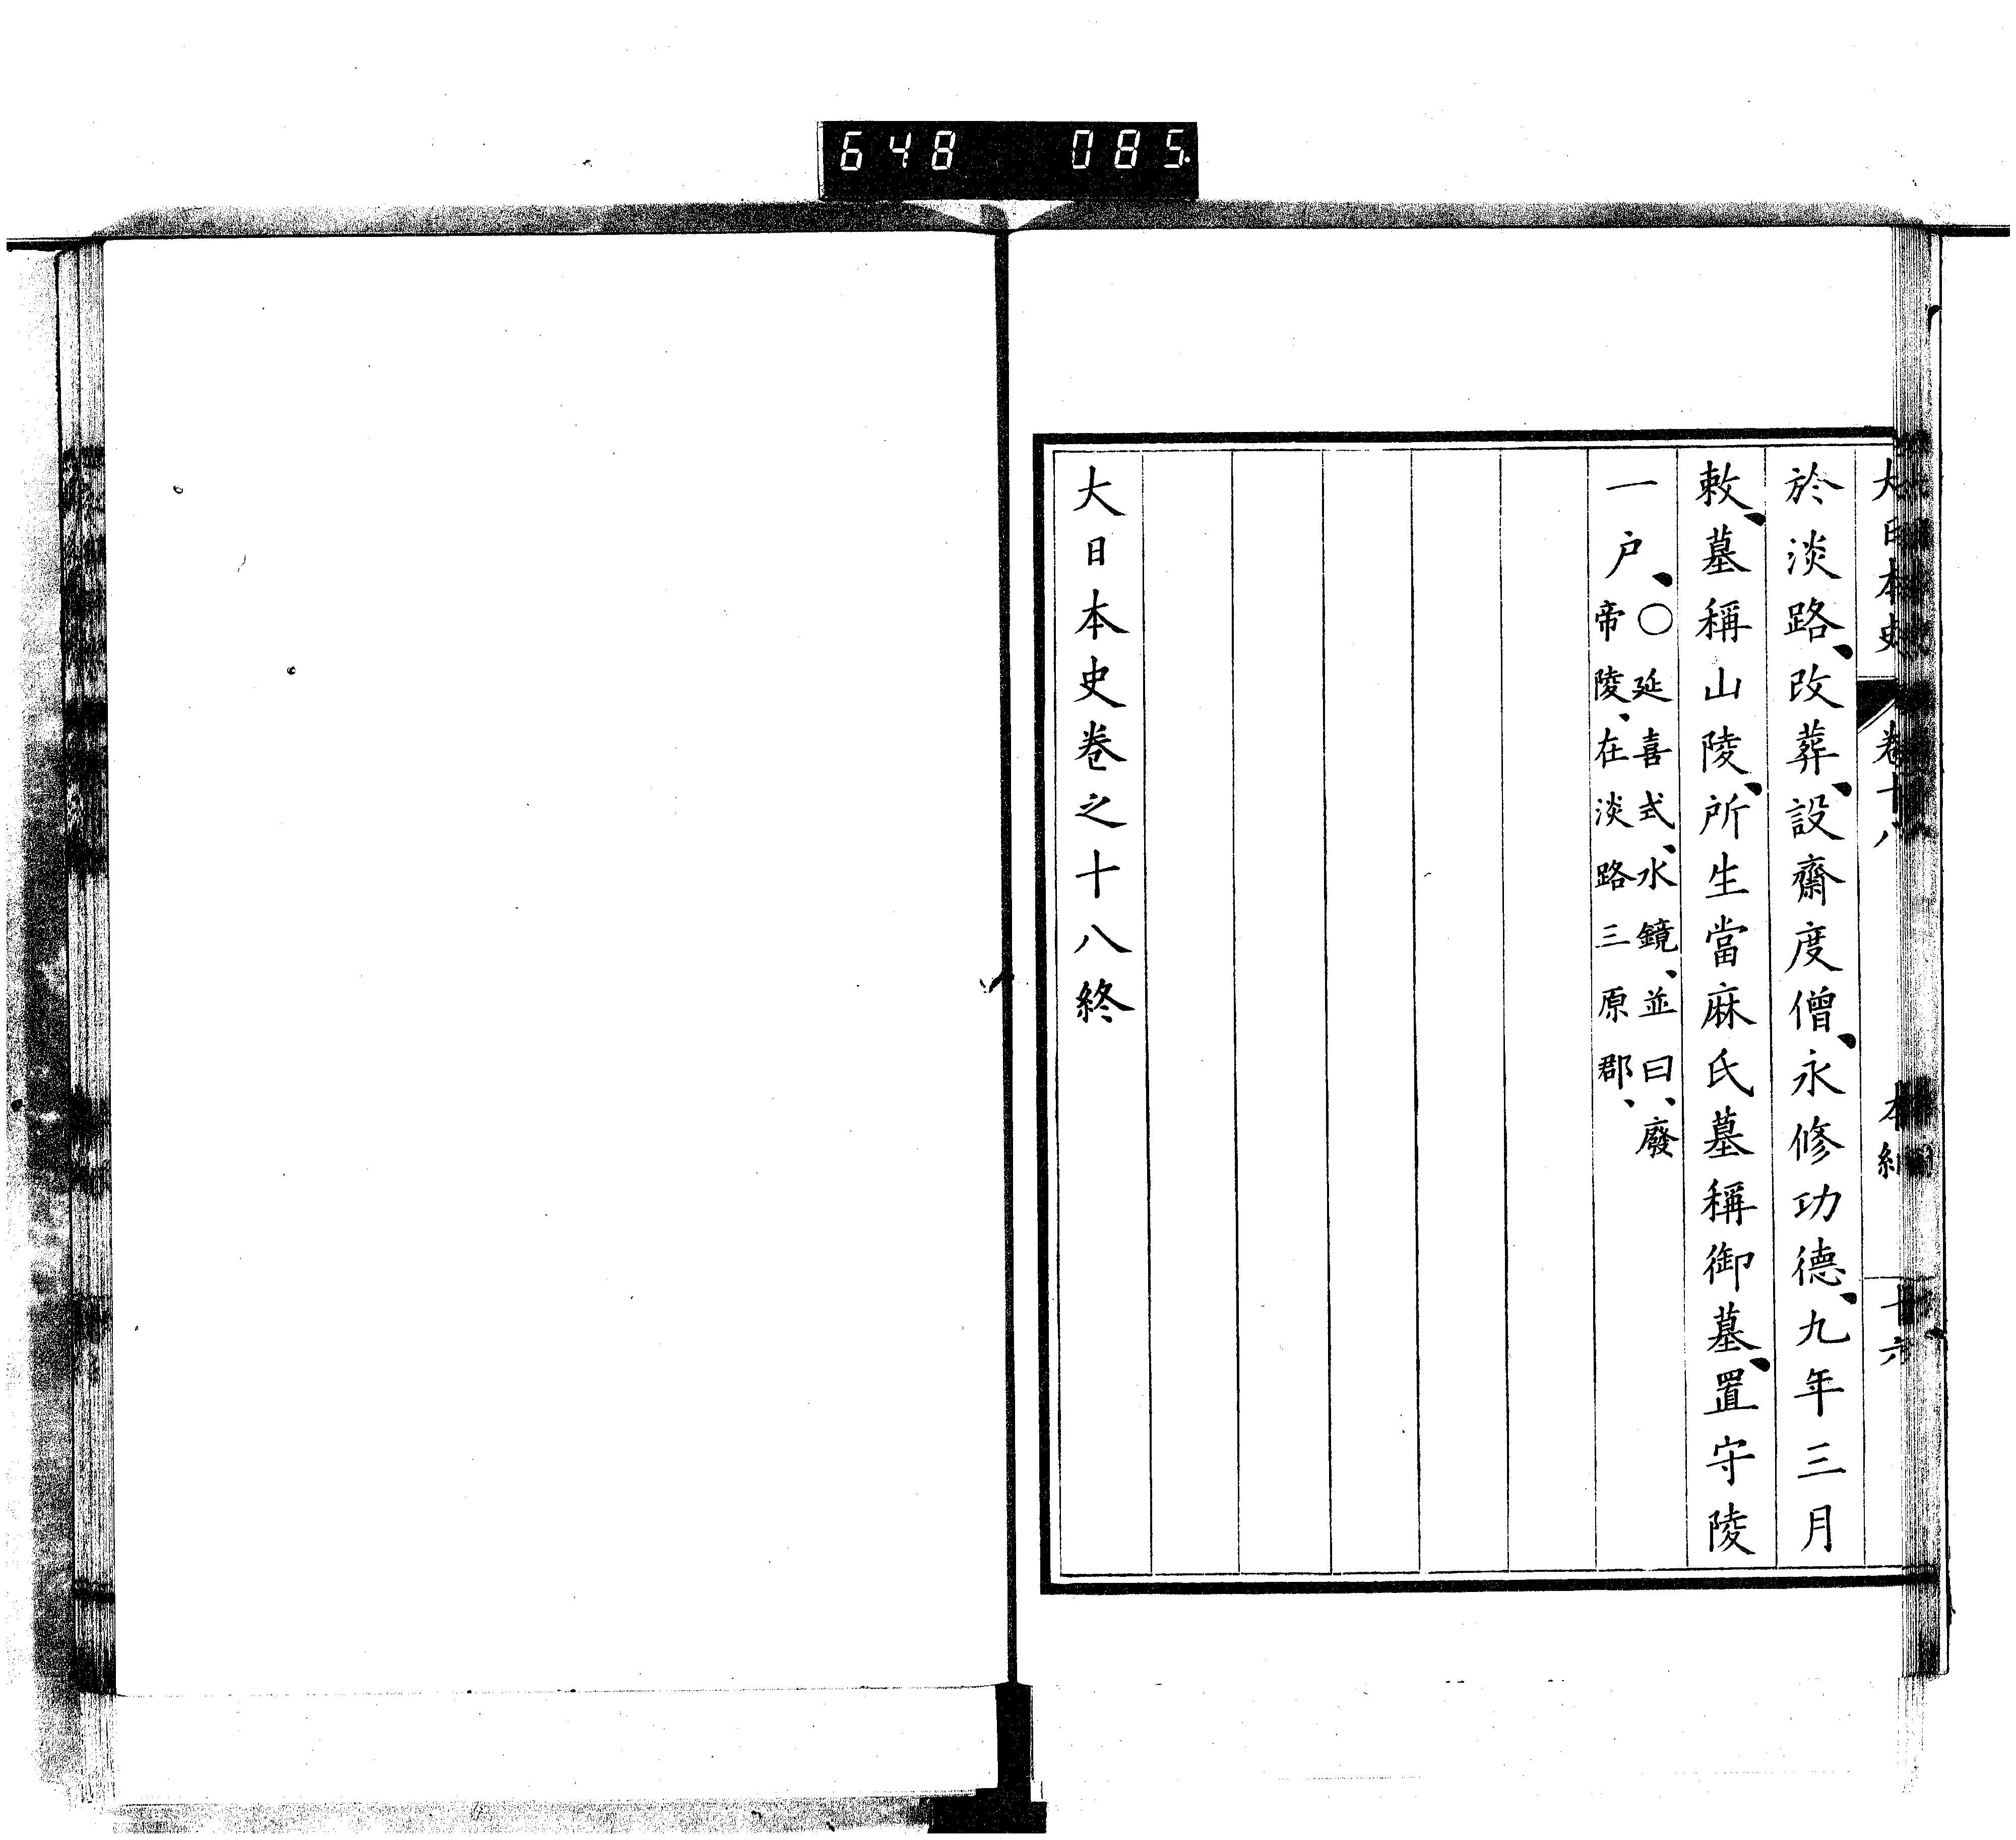 648 085
大日本史 卷十八 本紀 廿六
於淡路、改葬、設齋度僧、永修功德、九年三月
敕、墓稱山陵、所生當麻氏墓稱御墓、置守陵
一戸、
〇延喜式、水鏡、並曰、廢
帝陵、在淡路三原郡、
大日本史卷之十八終